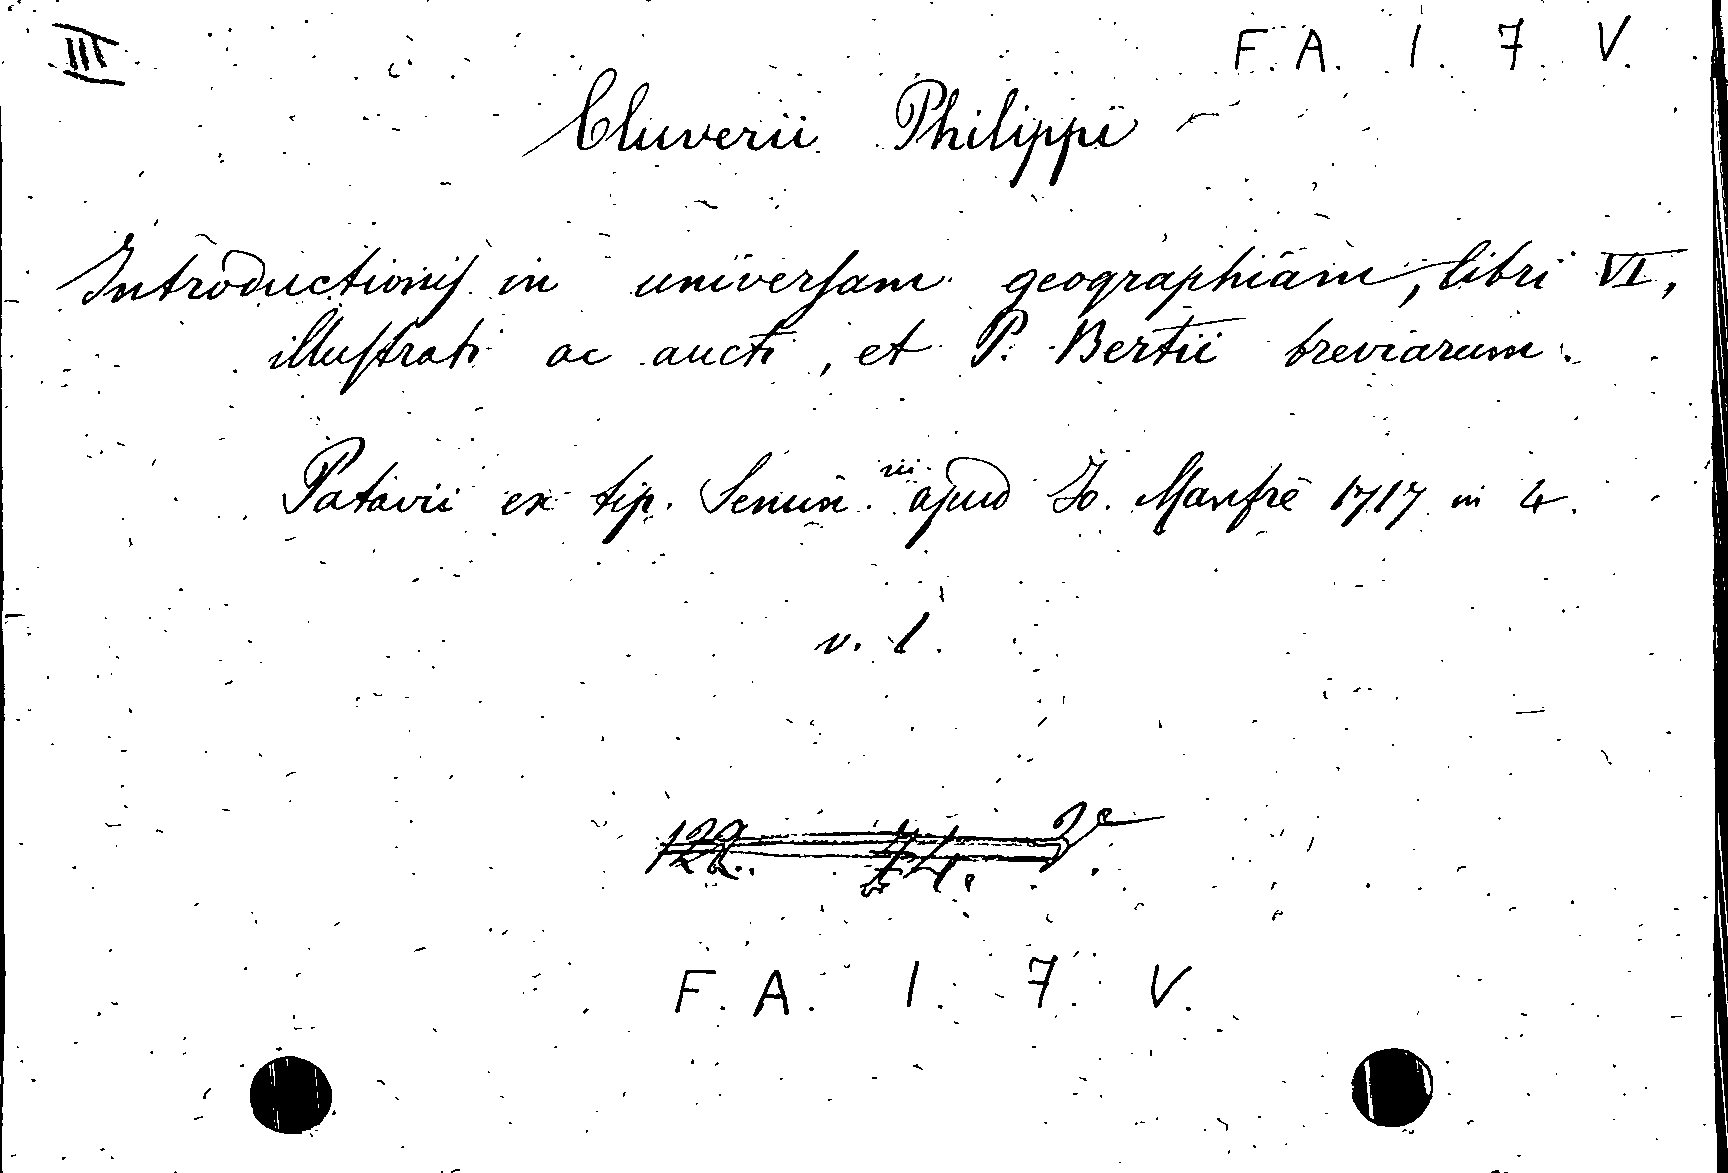 III F. A. 1. 7. V.
Cluverii Philippi
Introductionis in universam geographiam, libri VI,
illustrati ac aucti, et P. Bertii breviarum.
Patavii ex tip. Semin.rii apud Jo. Manfrè 1717 in 4.
v. 1.
F. A. 1. 7. V.